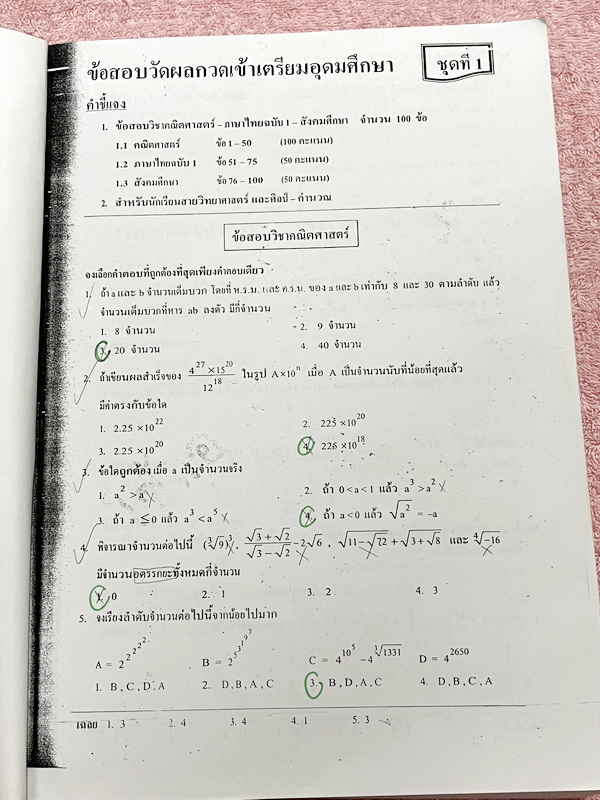 ข้อสอบวัดผลกวดเข้าเตรียมอุดมศึกษา
ชุดที่ 1
คำชี้แจง
1. ข้อสอบวิชาคณิตศาสตร์ – ภาษาไทยฉบับ 1 – สังคมศึกษา จำนวน 100 ข้อ
1.1 คณิตศาสตร์ ข้อ 1 – 50 (100 คะแนน)
1.2 ภาษาไทยฉบับ 1 ข้อ 51 – 75 (50 คะแนน)
1.3 สังคมศึกษา ข้อ 76 – 100 (50 คะแนน)
2. สำหรับนักเรียนสายวิทยาศาสตร์ และศิลป์ – คำนวณ
ข้อสอบวิชาคณิตศาสตร์
จงเลือกคำตอบที่ถูกต้องที่สุดเพียงคำตอบเดียว
1. ถ้า a และ b จำนวนเต็มบวก โดยที่ ห.ร.ม. และ ค.ร.น. ของ a และ b เท่ากับ 8 และ 30 ตามลำดับ แล้ว
จำนวนเต็มบวกที่หาร ab ลงตัว มีกี่จำนวน
1. 8 จำนวน 2. 9 จำนวน
3. 20 จำนวน 4. 40 จำนวน
2. ถ้าเขียนผลสำเร็จของ (4^27 × 15^20)/12^18 ในรูป A×10^n เมื่อ A เป็นจำนวนนับที่น้อยที่สุดแล้ว
มีค่าตรงกับข้อใด
1. 2.25 ×10^22 2. 225 ×10^20
3. 2.25 ×10^20 4. 225 ×10^18
3. ข้อใดถูกต้อง เมื่อ a เป็นจำนวนจริง
1. a^2 > a 2. ถ้า 0 < a < 1 แล้ว a^3 > a^2
3. ถ้า a ≤ 0 แล้ว a^3 < a^5 4. ถ้า a < 0 แล้ว √a^2 = –a
4. พิจารณาจำนวนต่อไปนี้ (∛9)^3 , (√3 + √2)/(√3 – √2) – 2√6 , √(11–√72) + √(3+√8) และ ∜–16
มีจำนวนอตรรกยะทั้งหมดกี่จำนวน
1. 0 2. 1 3. 2 4. 3
5. จงเรียงลำดับจำนวนต่อไปนี้จากน้อยไปมาก
A = 2^2^2^2^2 B = 2^5^3^1^9^7 C = 4^10^5 – 4^∛1331 D = 4^2650
1. B , C , D , A 2. D , B , A , C 3. B , D , A , C 4. D , B , C , A
เฉลย 1. 3 2. 4 3. 4 4. 1 5. 3